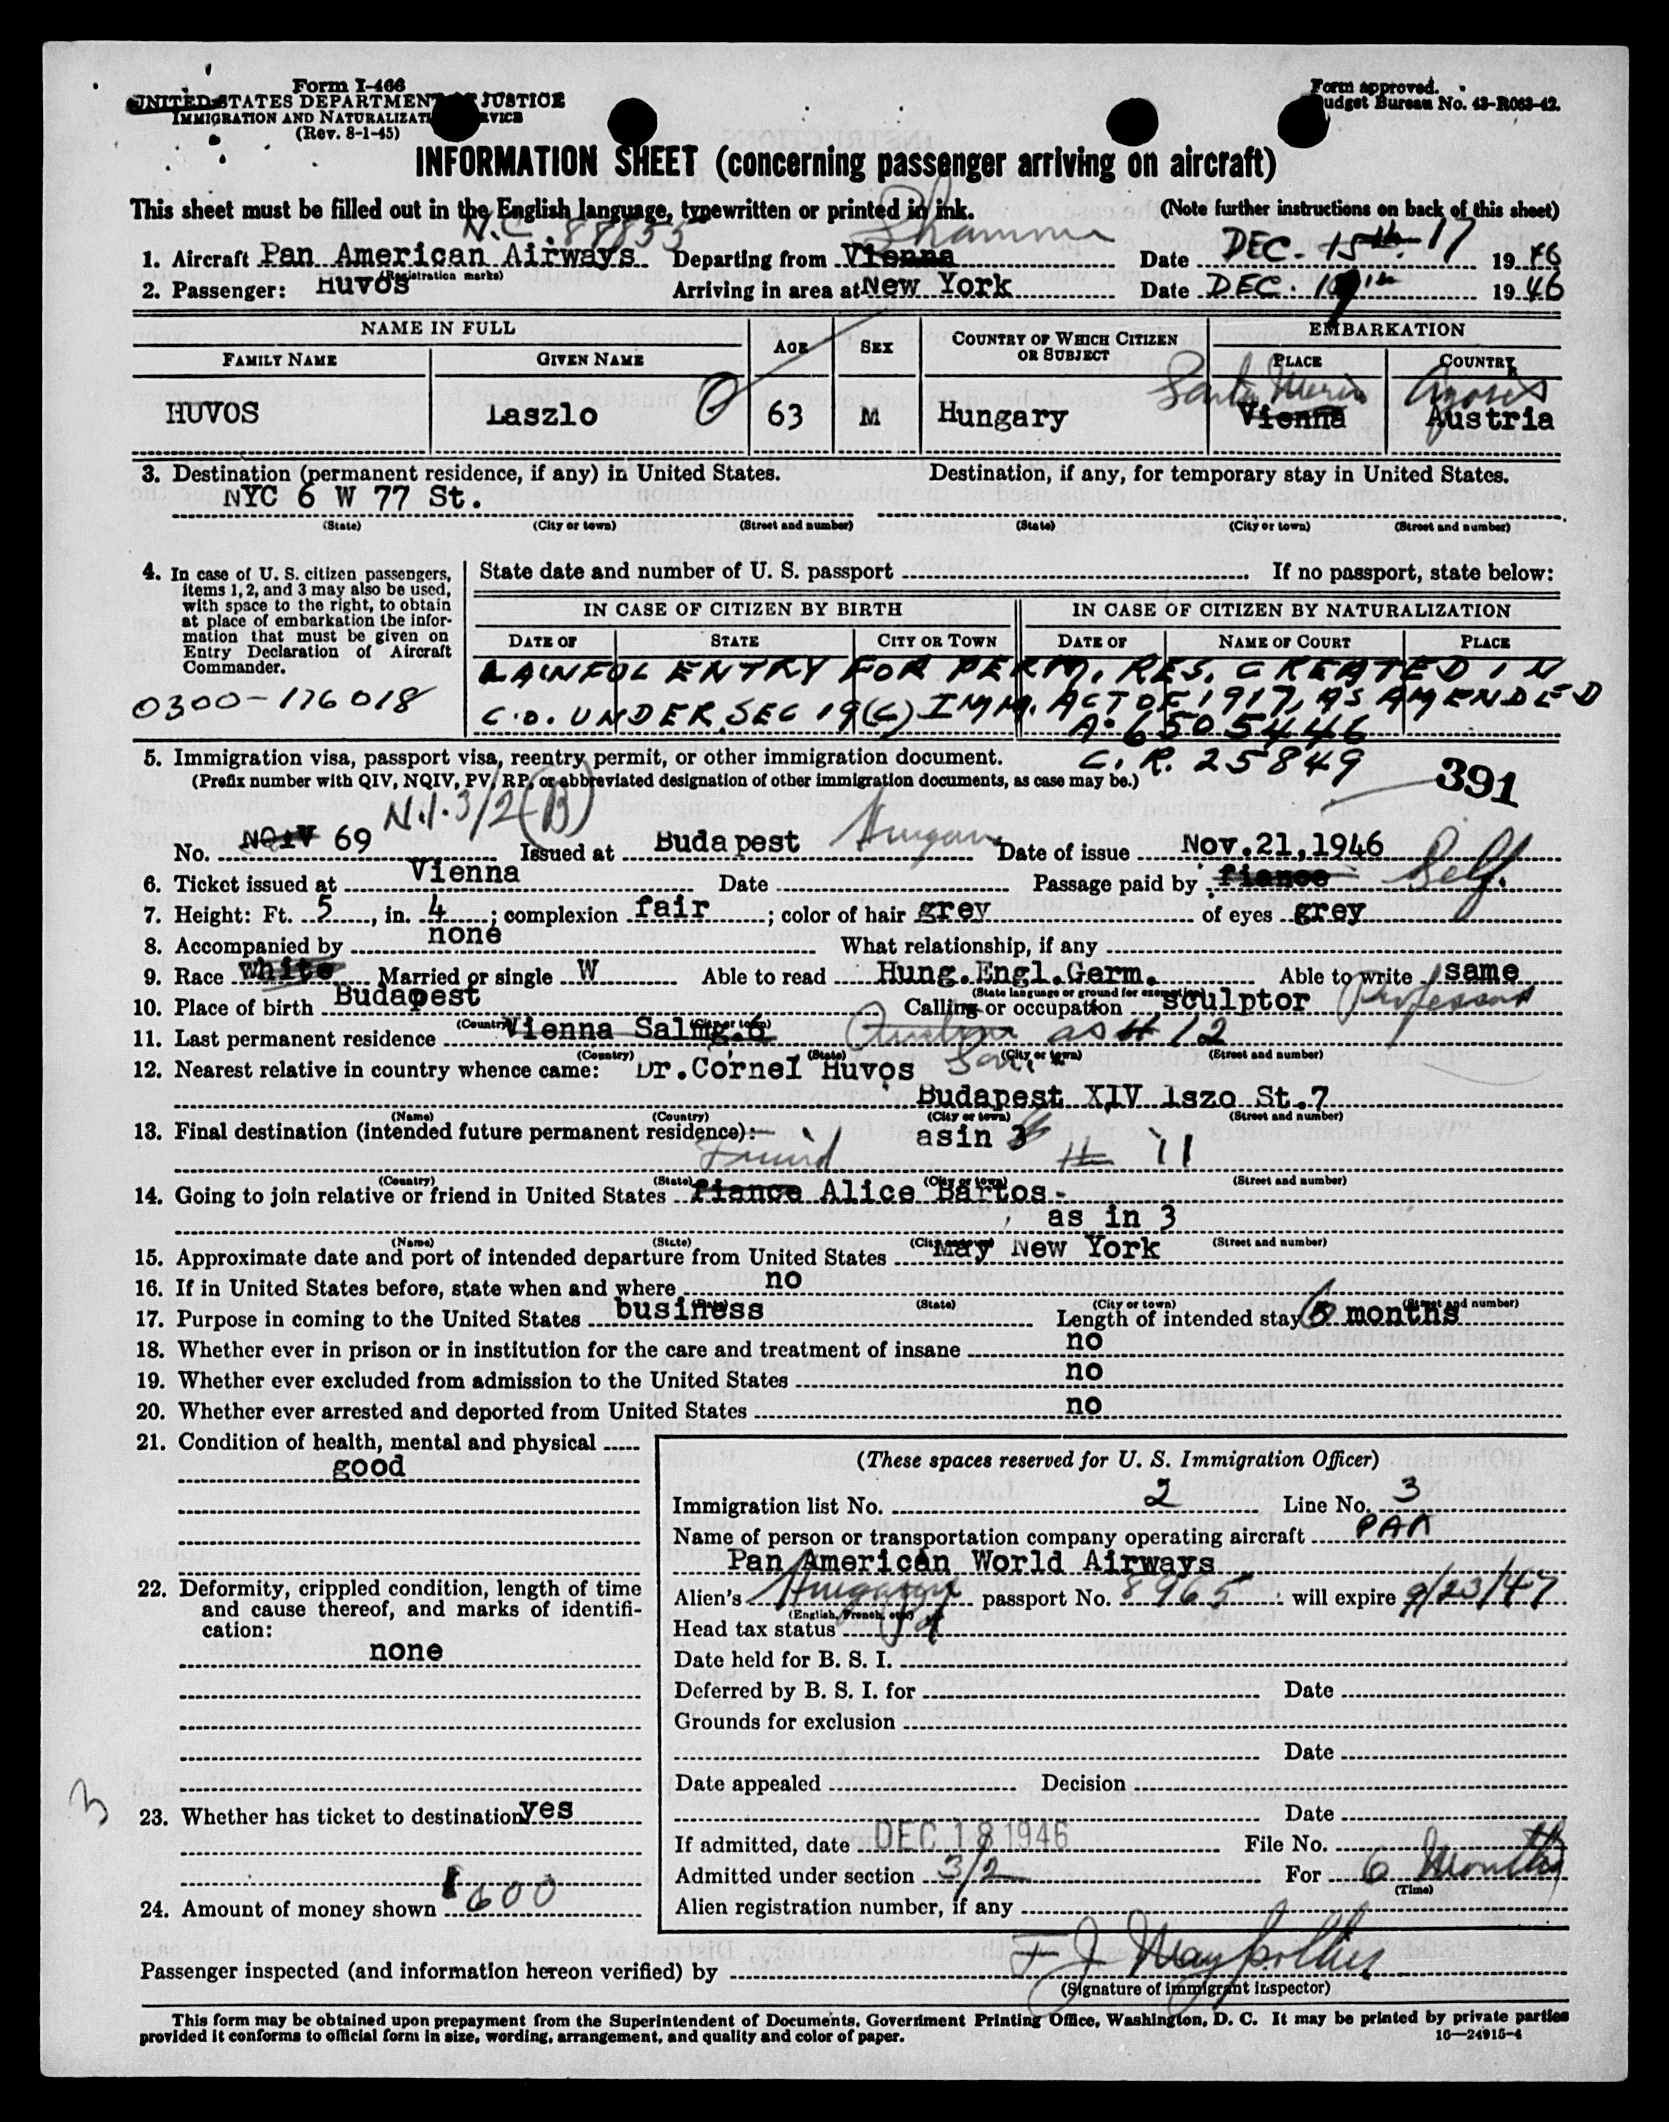 Form I-466
UNITED STATES DEPARTMENT OF JUSTICE
IMMIGRATION AND NATURALIZATION SERVICE
(Rev. 8-1-45)
Form approved.
Budget Bureau No. 43-R063-42.
INFORMATION SHEET (concerning passenger arriving on aircraft)
This sheet must be filled out in the English language, typewritten or printed in ink. (Note further instructions on back of this sheet)
N.C. 88855 Shannon
1. Aircraft Pan American Airways Departing from Vienna Date DEC. 15th 17 1946
(Registration marks)
2. Passenger: Huvos Arriving in area at New York Date DEC. 19th 1946
NAME IN FULL AGE SEX COUNTRY OF WHICH CITIZEN OR SUBJECT EMBARKATION
FAMILY NAME GIVEN NAME PLACE COUNTRY
Santa Maria Azores
HUVOS Laszlo 63 M Hungary Vienna Austria
3. Destination (permanent residence, if any) in United States. Destination, if any, for temporary stay in United States.
NYC 6 W 77 St.
(State) (City or town) (Street and number) (State) (City or town) (Street and number)
4. In case of U. S. citizen passengers, items 1, 2, and 3 may also be used, with space to the right, to obtain at place of embarkation the information that must be given on Entry Declaration of Aircraft Commander.
State date and number of U. S. passport If no passport, state below:
IN CASE OF CITIZEN BY BIRTH IN CASE OF CITIZEN BY NATURALIZATION
DATE OF STATE CITY OR TOWN DATE OF NAME OF COURT PLACE
LAWFUL ENTRY FOR PERM. RES. CREATED IN
0300-176018
C.O. UNDER SEC 19(C) IMM. ACT OF 1917, AS AMENDED
A-6505446
C.R. 25849
5. Immigration visa, passport visa, reentry permit, or other immigration document.
(Prefix number with QIV, NQIV, PV, RP, or abbreviated designation of other immigration documents, as case may be.)
391
N.I. 3/2 (B)
No. NQIV 69 Issued at Budapest Hungary Date of issue Nov.21,1946
6. Ticket issued at Vienna Date Passage paid by fiance Self.
7. Height: Ft. 5, in. 4; complexion fair; color of hair grey of eyes grey
8. Accompanied by none What relationship, if any
9. Race white Married or single W Able to read Hung.Engl.Germ. Able to write same
(State language or ground for exemption)
10. Place of birth Budapest Calling or occupation sculptor Professor
(Country) (City or town)
11. Last permanent residence Vienna Salmg.6 as # 12
(Country) (State) (City or town) (Street and number)
12. Nearest relative in country whence came: Dr.Cornel Huvos Son.
Budapest XIV Iszo St.7
(Name) (Country) (City or town) (Street and number)
13. Final destination (intended future permanent residence): asin 3
Friend # 11
(Country) (State) (City or town) (Street and number)
14. Going to join relative or friend in United States fiance Alice Bartos -
as in 3
(Name) (State) (City or town) (Street and number)
15. Approximate date and port of intended departure from United States May New York
16. If in United States before, state when and where no
(Date) (State) (City or town) (Street and number)
17. Purpose in coming to the United States business Length of intended stay 6 months
18. Whether ever in prison or in institution for the care and treatment of insane no
19. Whether ever excluded from admission to the United States no
20. Whether ever arrested and deported from United States no
21. Condition of health, mental and physical
good
22. Deformity, crippled condition, length of time and cause thereof, and marks of identification:
none
3
23. Whether has ticket to destination yes
24. Amount of money shown $600
(These spaces reserved for U. S. Immigration Officer)
Immigration list No. 2 Line No. 3
Name of person or transportation company operating aircraft PAA
Pan American World Airways
Alien's Hungary passport No. 8965 will expire 9/23/47
(English, French, etc.)
Head tax status
Date held for B. S. I.
Deferred by B. S. I. for Date
Grounds for exclusion
Date
Date appealed Decision
Date
If admitted, date DEC 18 1946 File No.
Admitted under section 3/2 For 6 Months
(Time)
Alien registration number, if any
Passenger inspected (and information hereon verified) by
(Signature of immigrant inspector)
This form may be obtained upon prepayment from the Superintendent of Documents, Government Printing Office, Washington, D. C. It may be printed by private parties
provided it conforms to official form in size, wording, arrangement, and quality and color of paper.
16—24915-4